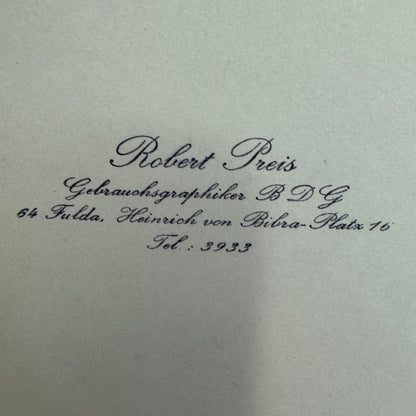 Robert Preis
Gebrauchsgraphiker B D G
64 Fulda, Heinrich von Bibra-Platz 16
Tel.: 3933